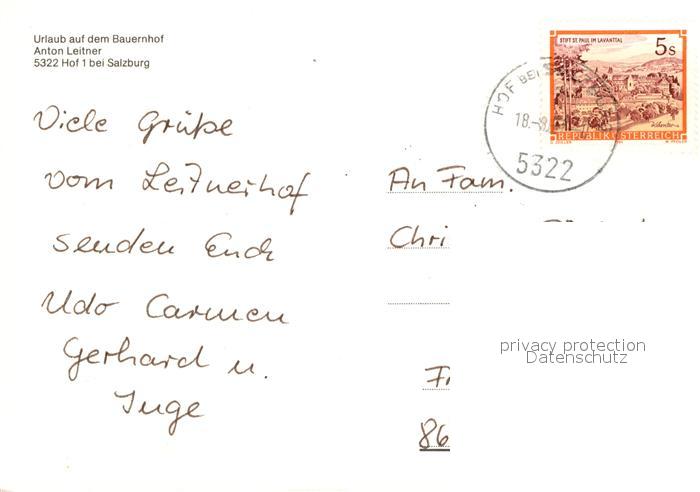 Urlaub auf dem Bauernhof
Anton Leitner
5322 Hof 1 bei Salzburg
STIFT ST. PAUL IM LAVANTTAL
5s
REPUBLIK ÖSTERREICH
HOF BEI
18.-8.
5322
Viele Grüße
vom Leitnerhof
senden Euch
Udo Carmen
Gerhard u.
Inge
An Fam.
Chri
86
privacy protection
Datenschutz